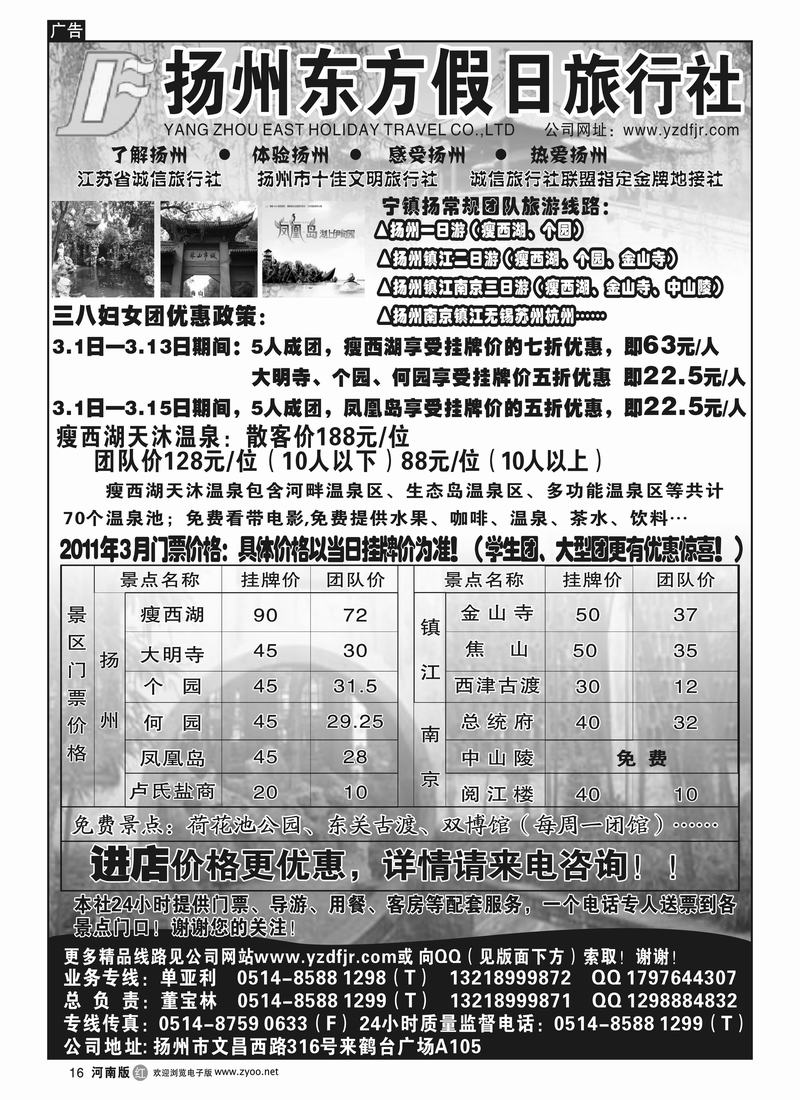 广告
扬州东方假日旅行社
YANG ZHOU EAST HOLIDAY TRAVEL CO.,LTD 公司网址：www.yzdfjr.com
了解扬州 ● 体验扬州 ● 感受扬州 ● 热爱扬州
江苏省诚信旅行社 扬州市十佳文明旅行社 诚信旅行社联盟指定金牌地接社
凤凰岛
宁镇扬常规团队旅游线路：
△扬州一日游（瘦西湖、个园）
△扬州镇江二日游（瘦西湖、个园、金山寺）
△扬州镇江南京三日游（瘦西湖、金山寺、中山陵）
△扬州南京镇江无锡苏州杭州……
三八妇女团优惠政策：
3.1日—3.13日期间：5人成团，瘦西湖享受挂牌价的七折优惠，即63元/人
大明寺、个园、何园享受挂牌价五折优惠 即22.5元/人
3.1日—3.15日期间，5人成团，凤凰岛享受挂牌价的五折优惠，即22.5元/人
瘦西湖天沐温泉：散客价188元/位
团队价128元/位（10人以下）88元/位（10人以上）
瘦西湖天沐温泉包含河畔温泉区、生态岛温泉区、多功能温泉区等共计
70个温泉池；免费看带电影,免费提供水果、咖啡、温泉、茶水、饮料…
2011年3月门票价格：具体价格以当日挂牌价为准！（学生团、大型团更有优惠惊喜！）
景区门票价格
扬州
景点名称 挂牌价 团队价
瘦西湖 90 72
大明寺 45 30
个园 45 31.5
何园 45 29.25
凤凰岛 45 28
卢氏盐商 20 10
景点名称 挂牌价 团队价
镇江
金山寺 50 37
焦山 50 35
西津古渡 30 12
南京
总统府 40 32
中山陵 免费
阅江楼 40 10
免费景点：荷花池公园、东关古渡、双博馆（每周一闭馆）……
进店价格更优惠，详情请来电咨询！！
本社24小时提供门票、导游、用餐、客房等配套服务，一个电话专人送票到各
景点门口！谢谢您的关注！
更多精品线路见公司网站www.yzdfjr.com或 向QQ（见版面下方）索取！谢谢！
业务专线：单亚利 0514-8588 1298（T） 13218999872 QQ 1797644307
总 负 责：董宝林 0514-8588 1299（T） 13218999871 QQ 1298884832
专线传真：0514-8759 0633（F） 24小时质量监督电话：0514-8588 1299（T）
公司地址：扬州市文昌西路316号来鹤台广场A105
16 河南版 红 欢迎浏览电子版 www.zyoo.net